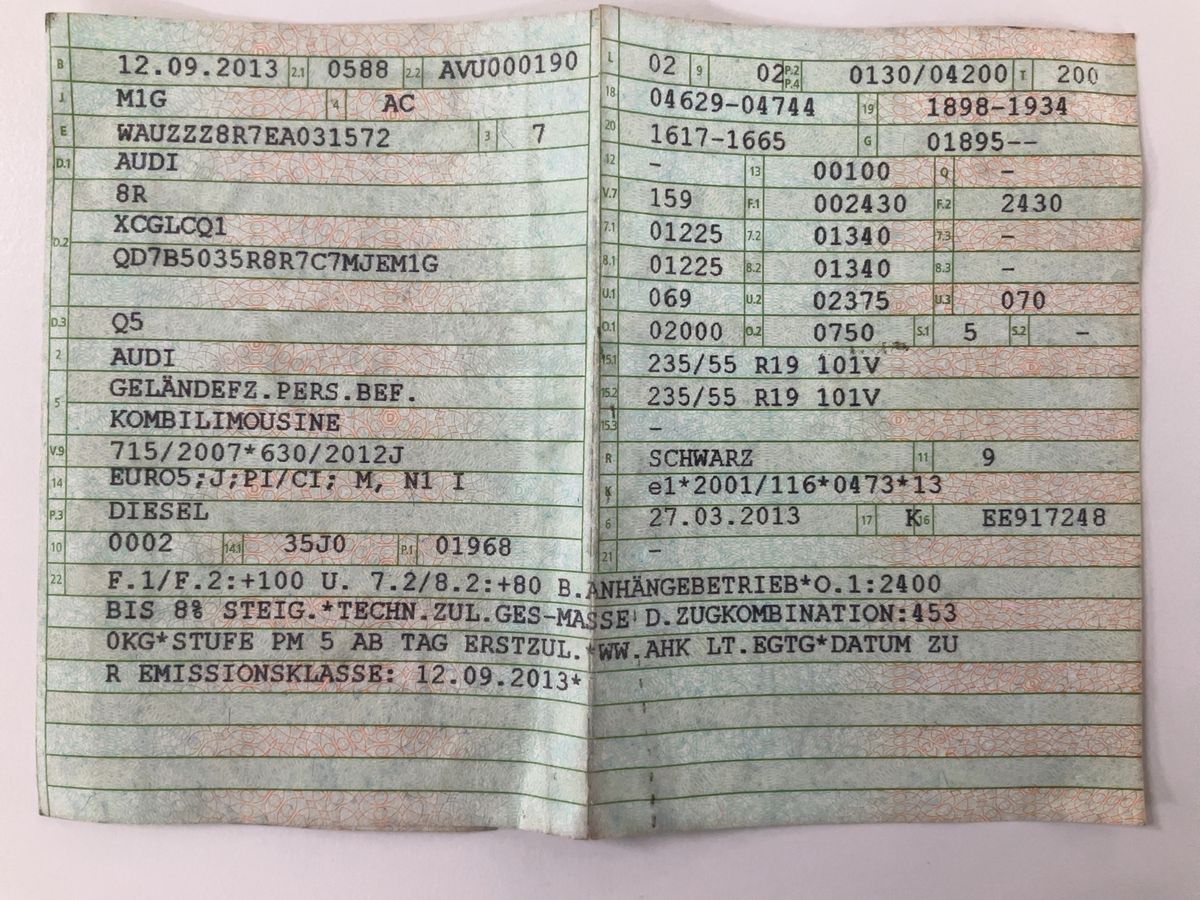 B 12.09.2013 2.1 0588 2.2 AVU000190
J M1G 4 AC
E WAUZZZ8R7EA031572 3 7
D.1 AUDI
D.2 8R
XCGLCQ1
QD7B5035R8R7C7MJEM1G
D.3 Q5
2 AUDI
5 GELÄNDEFZ.PERS.BEF.
KOMBILIMOUSINE
V.9 715/2007*630/2012J
14 EURO5;J;PI/CI; M, N1 I
P.3 DIESEL
10 0002 14.1 35J0 P.1 01968
L 02 9 02 P.2 P.4 0130/04200 T 200
18 04629-04744 19 1898-1934
20 1617-1665 G 01895--
12 - 13 00100 Q -
V.7 159 F.1 002430 F.2 2430
7.1 01225 7.2 01340 7.3 -
8.1 01225 8.2 01340 8.3 -
U.1 069 U.2 02375 U.3 070
O.1 02000 O.2 0750 S.1 5 S.2 -
15.1 235/55 R19 101V
15.2 235/55 R19 101V
15.3 -
R SCHWARZ 11 9
K e1*2001/116*0473*13
6 27.03.2013 17 K 16 EE917248
21 -
22 F.1/F.2:+100 U. 7.2/8.2:+80 B.ANHÄNGEBETRIEB*O.1:2400
BIS 8% STEIG.*TECHN.ZUL.GES-MASSE D.ZUGKOMBINATION:453
0KG*STUFE PM 5 AB TAG ERSTZUL.*WW.AHK LT.EGTG*DATUM ZU
R EMISSIONSKLASSE: 12.09.2013*